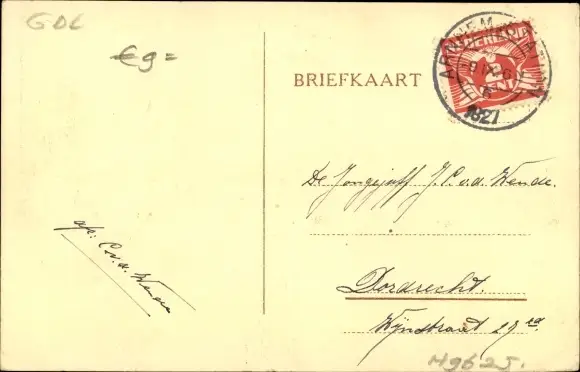 GDL
€9=
BRIEFKAART
ARNHEM-STATION
1927
NEDERLAND
De Jongejuff J.C. v.d. Wende.
Dordrecht.
Wijnstraat 29 rd
afz: C. v. d. Wende
H9625.